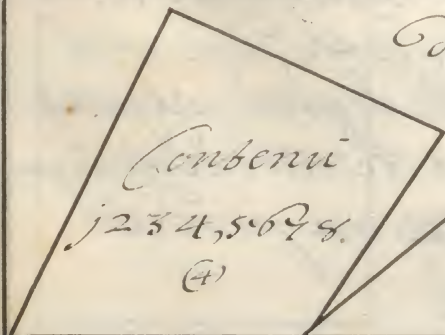 Contenu
j234,5678.
(4)